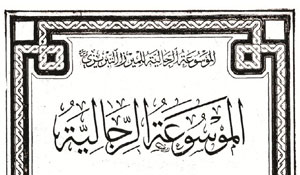 الموسوعة الرجالية للميرزا التبريزي
المَوْسُوعَةُ الرِّجَاليَّةُ